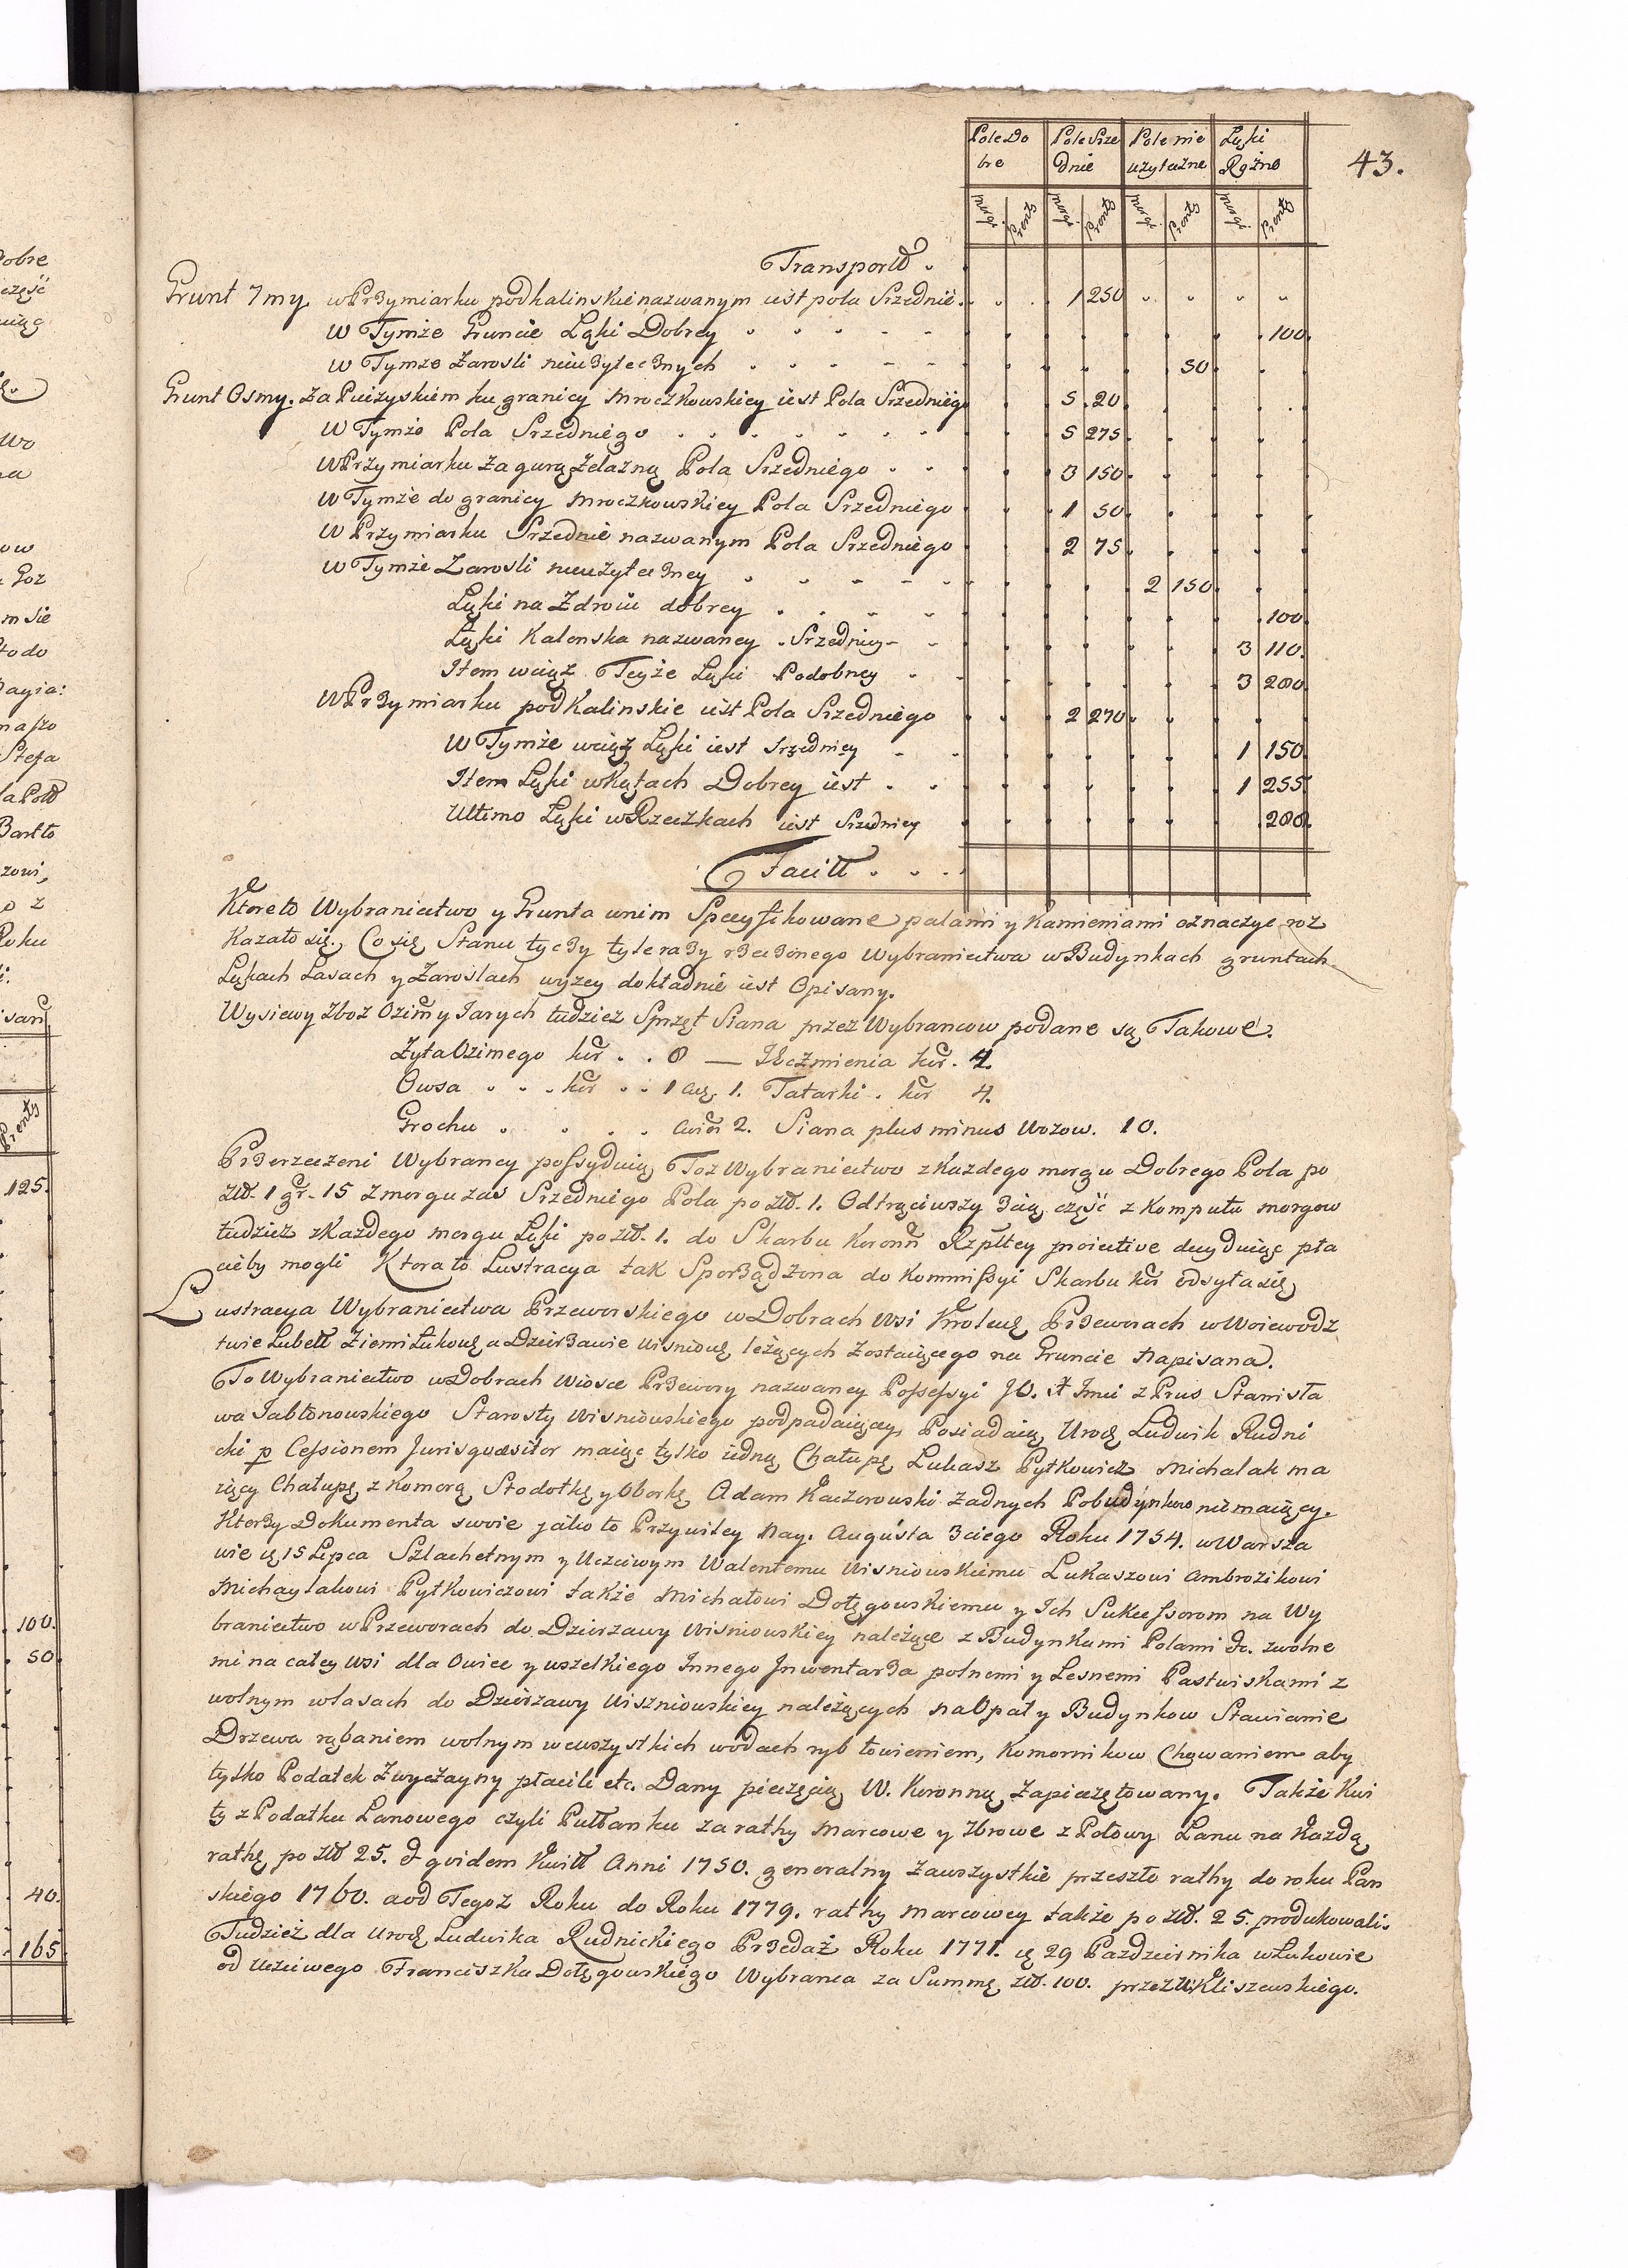 43.
Pole Do Pole Srze Pole nie Łąki
bre dnie użyteczne Rożne
morgi Pręnty morgi Pręnty morgi Pręnty morgi Pręnty
Transportt .
Grunt 7my w Przymiarku podkalinskie nazwanym iest pola Srzednie. 1 250
W Tymże Gruncie Łąki Dobrey 100.
W Tymże Zarosli nieużytecznych 50
Grunt Osmy. za Pieżyskiem ku granicy Mroczkowskiey iest Pola Srzedniego 5 . 20
W Tymże Pola Srzedniego 5 275
W Przymiarku za gurą żelazną Pola Srzedniego 3 150
W Tymże do granicy Mroczkowskiey Pola Srzedniego 1 50
W Przymiarku Srzednie nazwanym Pola Srzedniego 2 75
W Tymże Zarosli nieużyteczney 2 150
Łąki na Zdroiu dobrey 100
Łąki Kalenska nazwaney . Srzedniey 3 110.
Item wciąż Teyże Łąki Podobney 3 200
W Przymiarku pod Kalinskie iest Pola Srzedniego 2 270
W Tymże wciąż Łąki iest srzedniey 1 150
Item Łąki w Kątach Dobrey iest 1 255
Ultimo Łąki w Rzeczkach iest Srzedniey 200
Facitt . . .
Ktoreto Wybraniectwo y Grunta w nim Specyfikowane palami y Kamieniami oznaczyc roz
kazało się. Co się Stanu tyczy tyle razy rzeczonego Wybraniectwa w Budynkach gruntach
Łąkach Lasach y Zaroslach wyzey dokładnie iest Opisany.
Wysiewy zboz Ozim y Jarych tudziez Sprzęt Siana przez Wybrancow podane są Takowe.
Zyta Ozimego kor . . 8 — Jęczmienia kor. 4.
Owsa . . . kor . . 1 cwę. 1. Tatarki . kor 4.
Grochu . . . . cwier 2. Siana plus minus Wozow. 10.
Przerzeczeni Wybrancy possyduią Toz Wybraniectwo z Kazdego morgu Dobrego Pola po
złł. 1 gr. 15 z morgu zas Srzedniego Pola po złł. 1. Odtrąciwszy 3cią część z Komputu morgow
tudziez z Każdego morgu Łąki po złł. 1. do Skarbu Koronn Rzpltey proiective decyduiąc pła
cicby mogli Ktora to Lustracya tak Sporządzona do Kommissyi Skarbu kor odsyła się
Lustracya Wybraniectwa Przeworskiego w Dobrach Wsi Krolews Przeworach w Woiewodz
twie Lubell Ziemi Łukows a Dzierzawie Wisniows leżących zostaiącego na Gruncie napisana.
To Wybraniectwo w Dobrach Wiosce Przewory nazwaney Possessyi JO. X Jmci z Prus Stanisła
wa Jabłonowskiego Starosty Wisniowskiego podpadaiącey, Posiadaią Urodz Ludwik Rudni
cki p Cessionem Jurisquaesitor maiąc tylko iedną Chałupę Lukasz Pytkowicz Michalak ma
iący Chałupę z Komorą Stodołkę y Oborkę Adam Kaczorowski żadnych Pobudynkow nie maiący.
Ktorzy Dokumenta swoie jako to Przywiley Nay. Augusta 3ciego Roku 1754. w Warsza
wie d. 15 Lipca Szlachetnym y Uczciwym Walentemu Wisniowskiemu Łukaszowi Ambrozikowi
Michaylakowi Pytkowiczowi także Michałowi Dołęgowskiemu y Ich Sukcessorom na Wy
braniectwo w Przeworach do Dzierzawy Wisniowskiey należące z Budynkami Polami &c. zwolne
mi na całey wsi dla Owiec y wszelkiego Innego Inwentarza polnemi y Lesnemi Pastwiskami z
wolnym w lasach do Dzierzawy Wiszniowskiey należących na Opał y Budynkow Stawianie
Drzewa rąbaniem wolnym we wszystkich wodach ryb łowieniem, Komornikow Chowaniem aby
tylko Podatek Zwyczayny płacili etc. Dany pieczęcią W. Koronną Zapieczętowany. Także Kwi
ty z Podatku Łanowego czyli Pułłanku za rathy Marcowe y 7browe z Połowy Łanu na Każdą
rathę po złł 25. & quidem Kwitt Anni 1750. generalny za wszystkie przeszłe rathy do roku Pan
skiego 1760. a od Tegoż Roku do Roku 1779. rathy Marcowey także po złł. 25. produkowali.
Tudzież dla Urodz Ludwika Rudnickiego Przedaż Roku 1771. d. 29 Pazdziernika w Łukowie
od Uczciwego Franciszka Dołęgowskiego Wybranca za Summę złł. 100. przez W Kliszewskiego.
125.
100.
50
40.
165